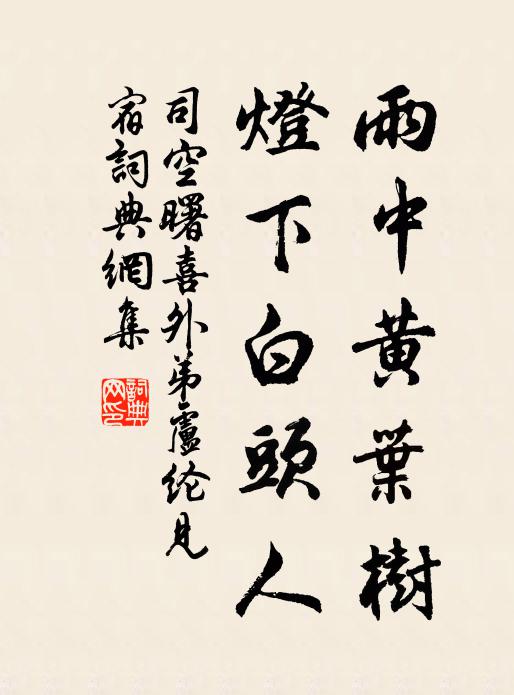 雨中黄葉樹
燈下白頭人
司空曙喜外弟盧纶見
宿詞典網集
詞典
网印